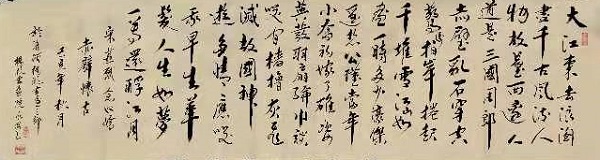 大江東去浪淘
盡千古風流人
物故壘西邊人
道是三國周郎
赤壁亂石穿空
驚濤拍岸捲起
千堆雪江山如
畫一時多少豪傑
遙想公瑾當年
小喬初嫁了雄姿
英發羽扇綸巾談
笑間檣櫓灰飛
滅故國神
遊多情應笑
我早生華
髮人生如夢
一尊還酹江月
宋蘇軾念奴嬌
赤壁懷古
年秋月